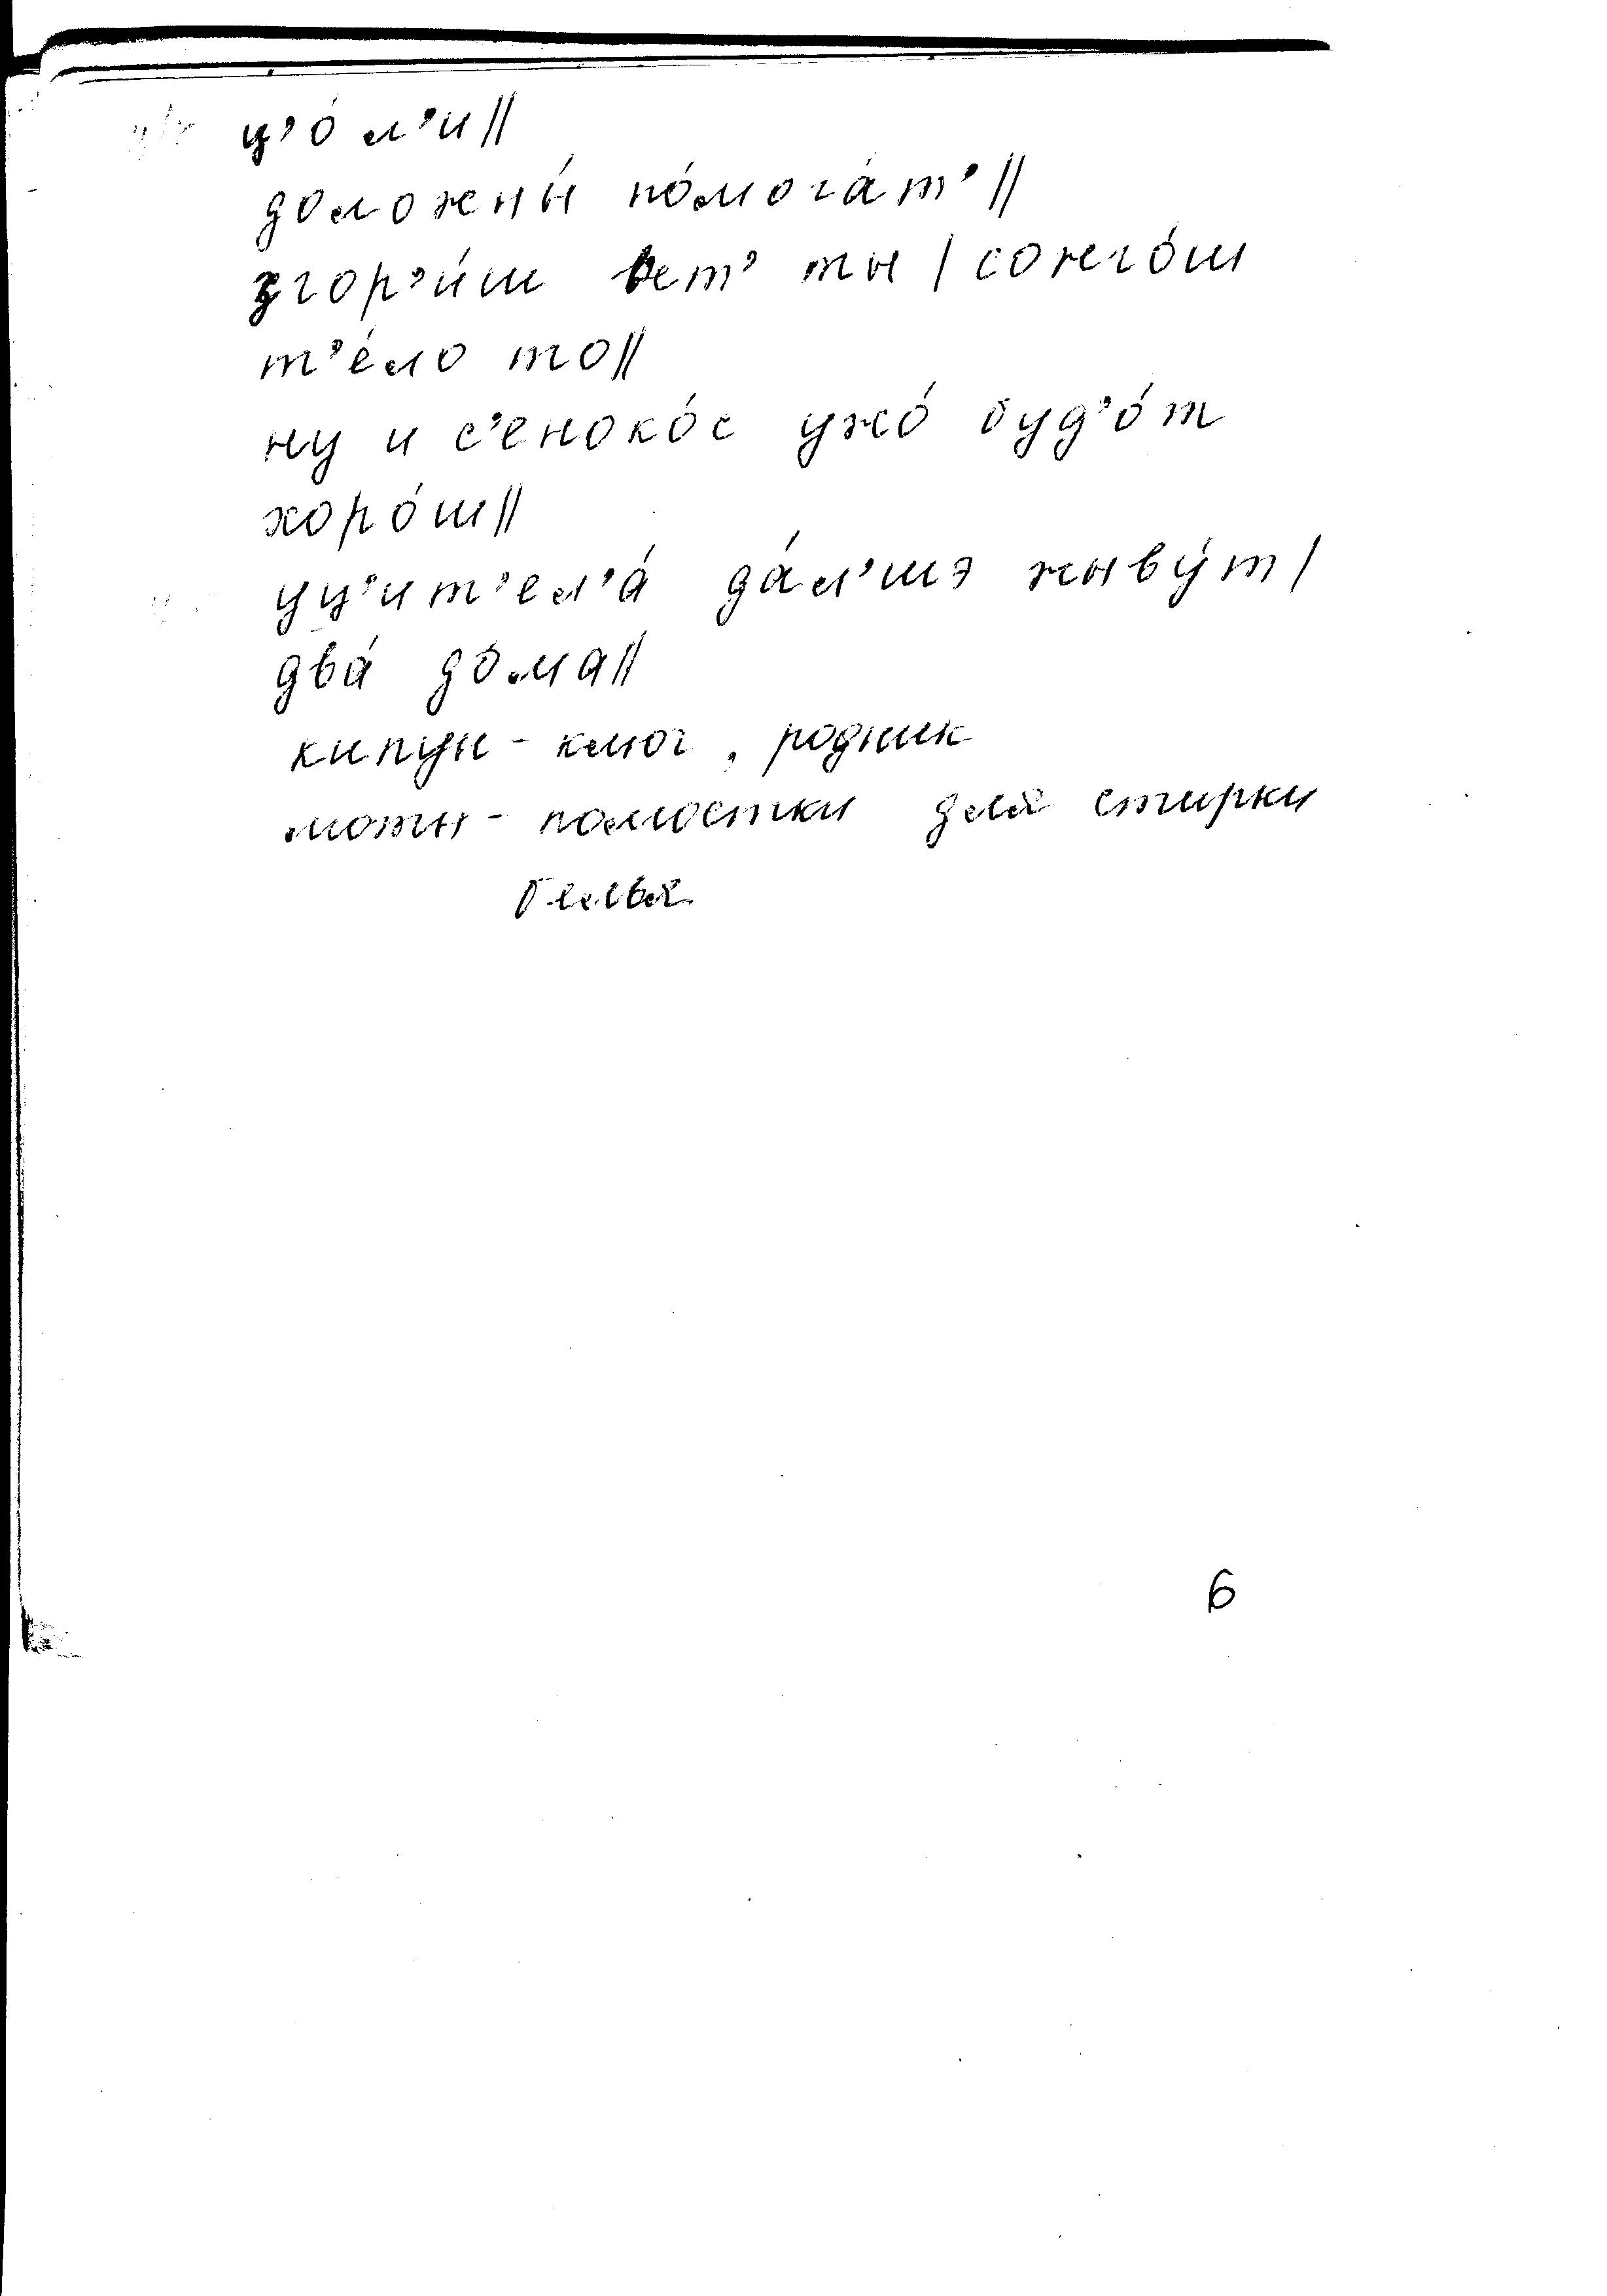 ц’о́ л’и||
доложены́ по́мога́т’||
згор’и́ш вет’ ты | сожго́ш
т’е́ло то||
ну и с’еноко́с ужо́ буд’о́т
хоро́ш||
уц’ит’ел’а́ да́л’шэ жыву́т|
два́ до́ма||
кипун - ключ, родник
моты - помостки для стирки
белья.
6